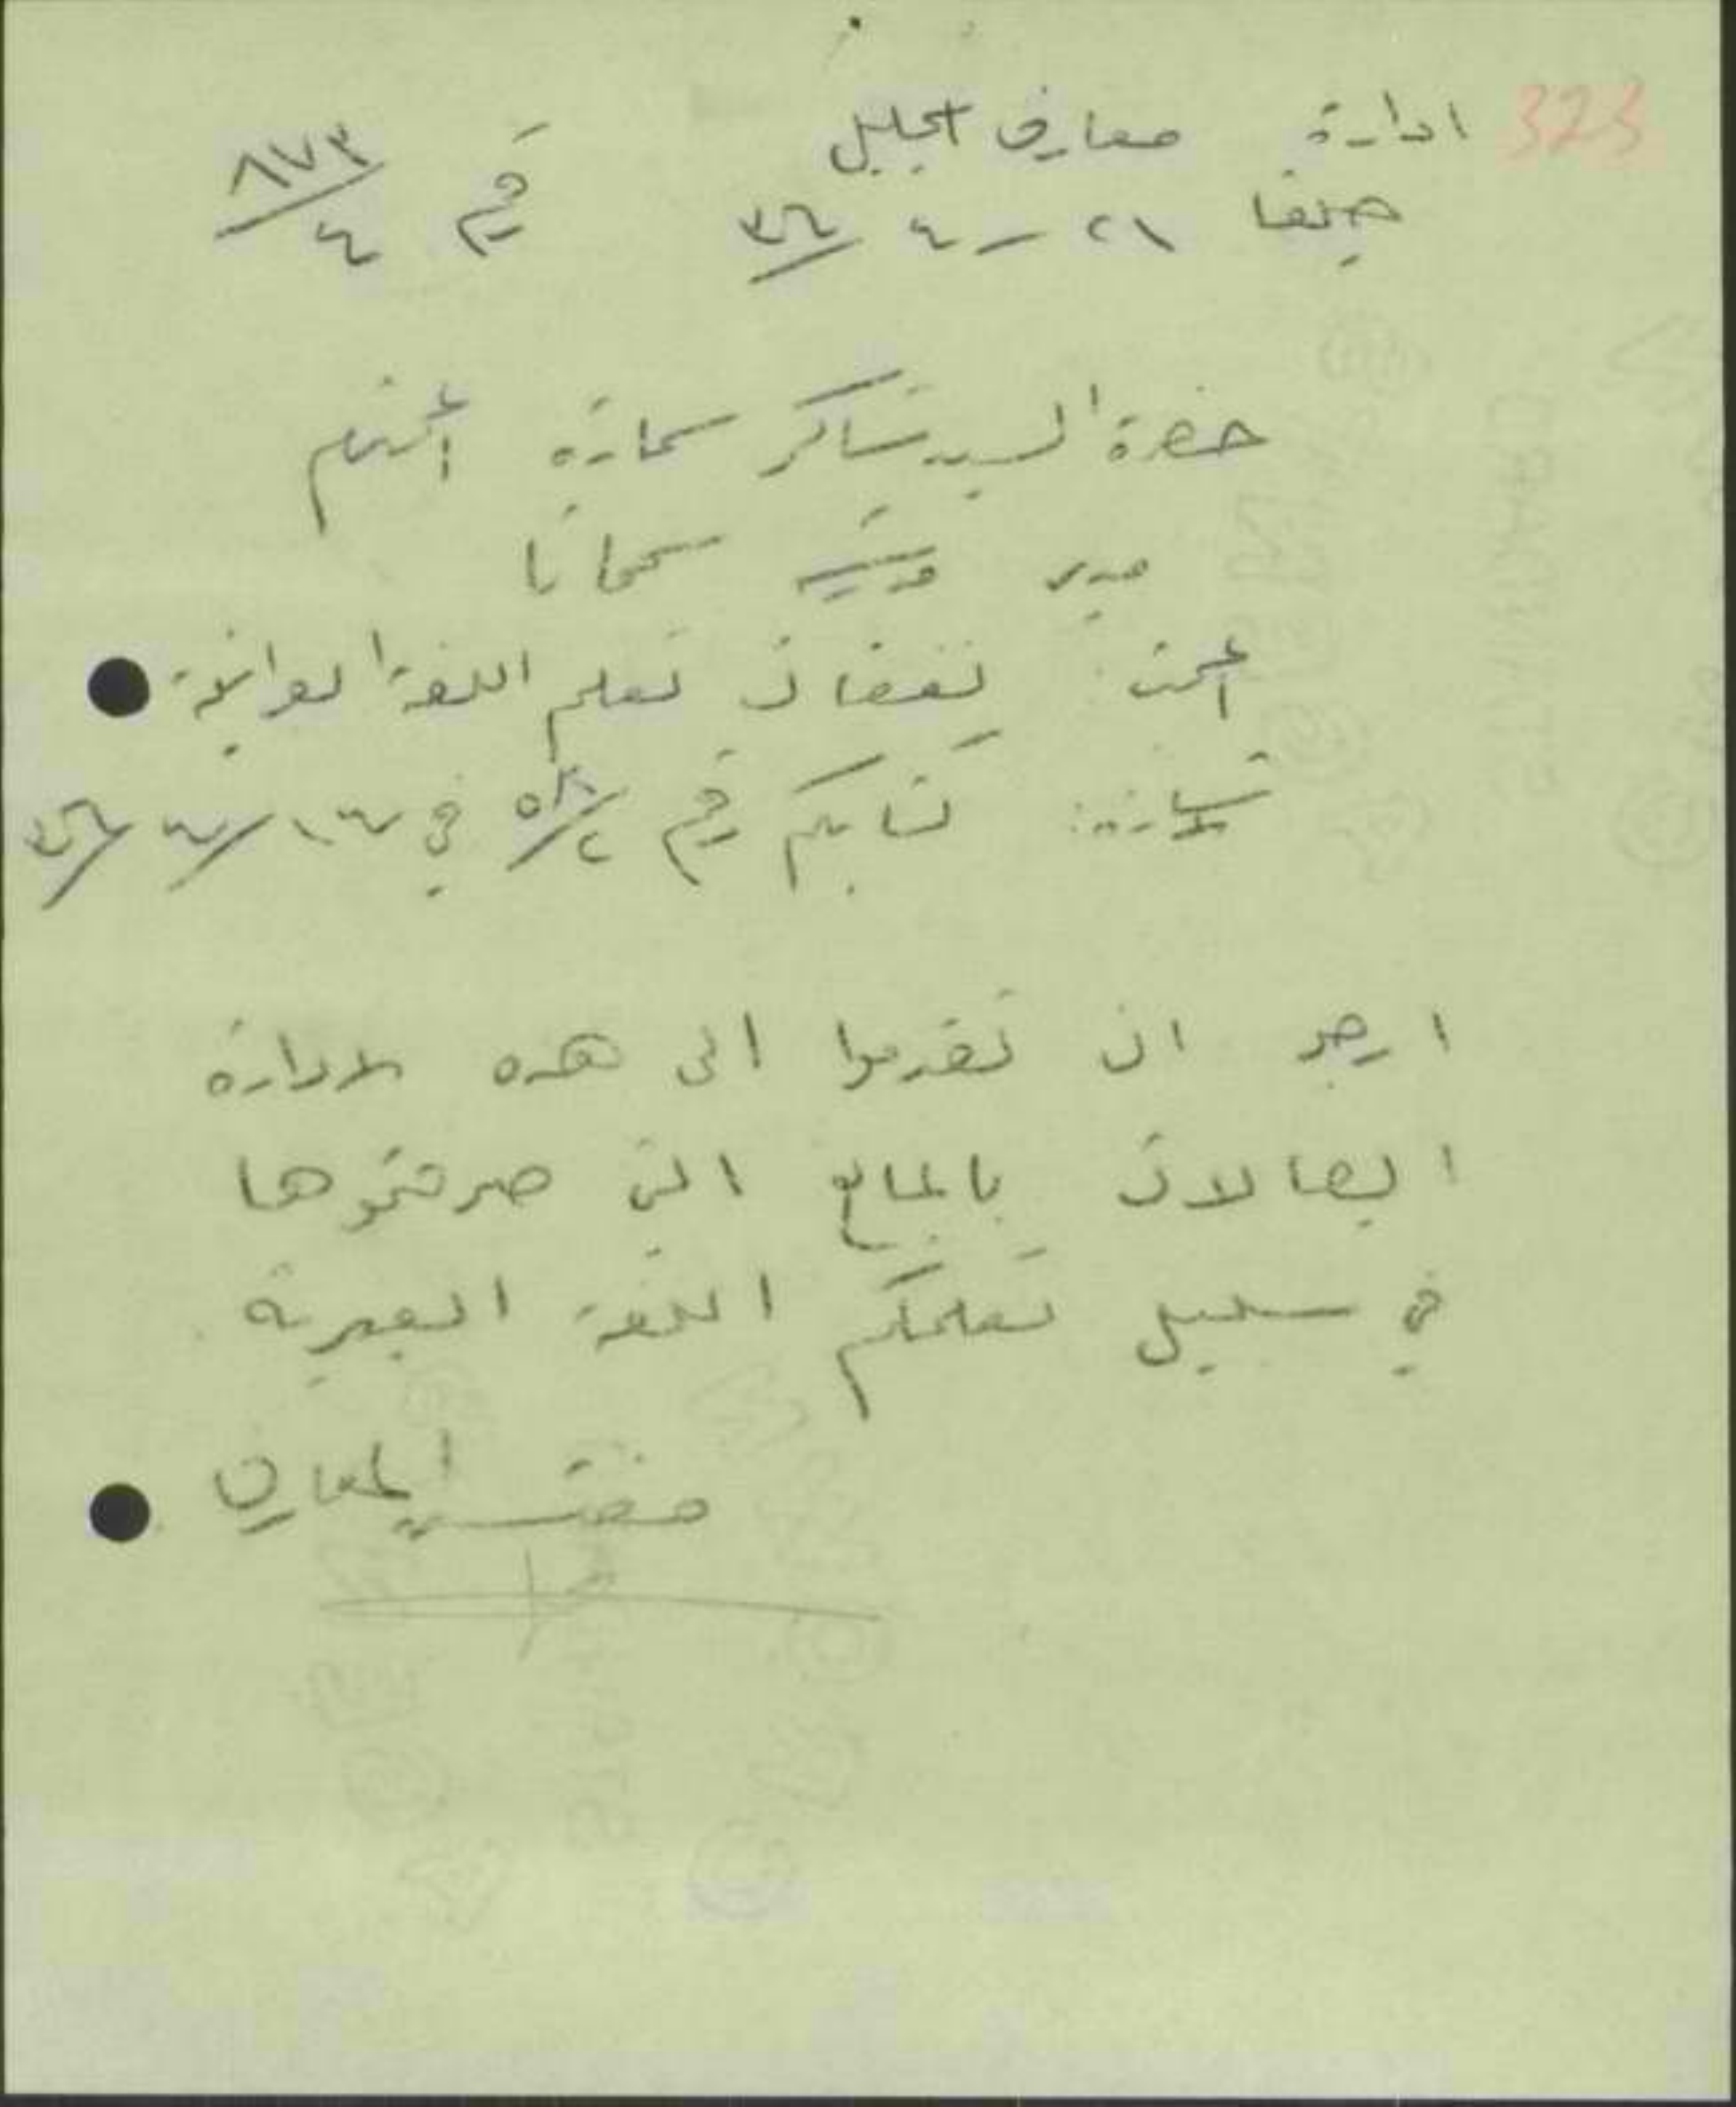 323
ادارة معارف الجليل
حيفا ٢١ - ٤/٣٦ رقم ٨٧٣/٤
حضرة السيد شاكر سمارة المحترم
مدير مدرسة سحماتا
البحث: نفقات تعلم اللغة العبرانية
اشارة: كتابكم رقم ٥٨/٢ في
ارجو ان تقدموا الى هذه الادارة
ايصالات بالمبالغ التي صرفتموها
في سبيل تعلمكم اللغة العبرية
مفتش المعارف